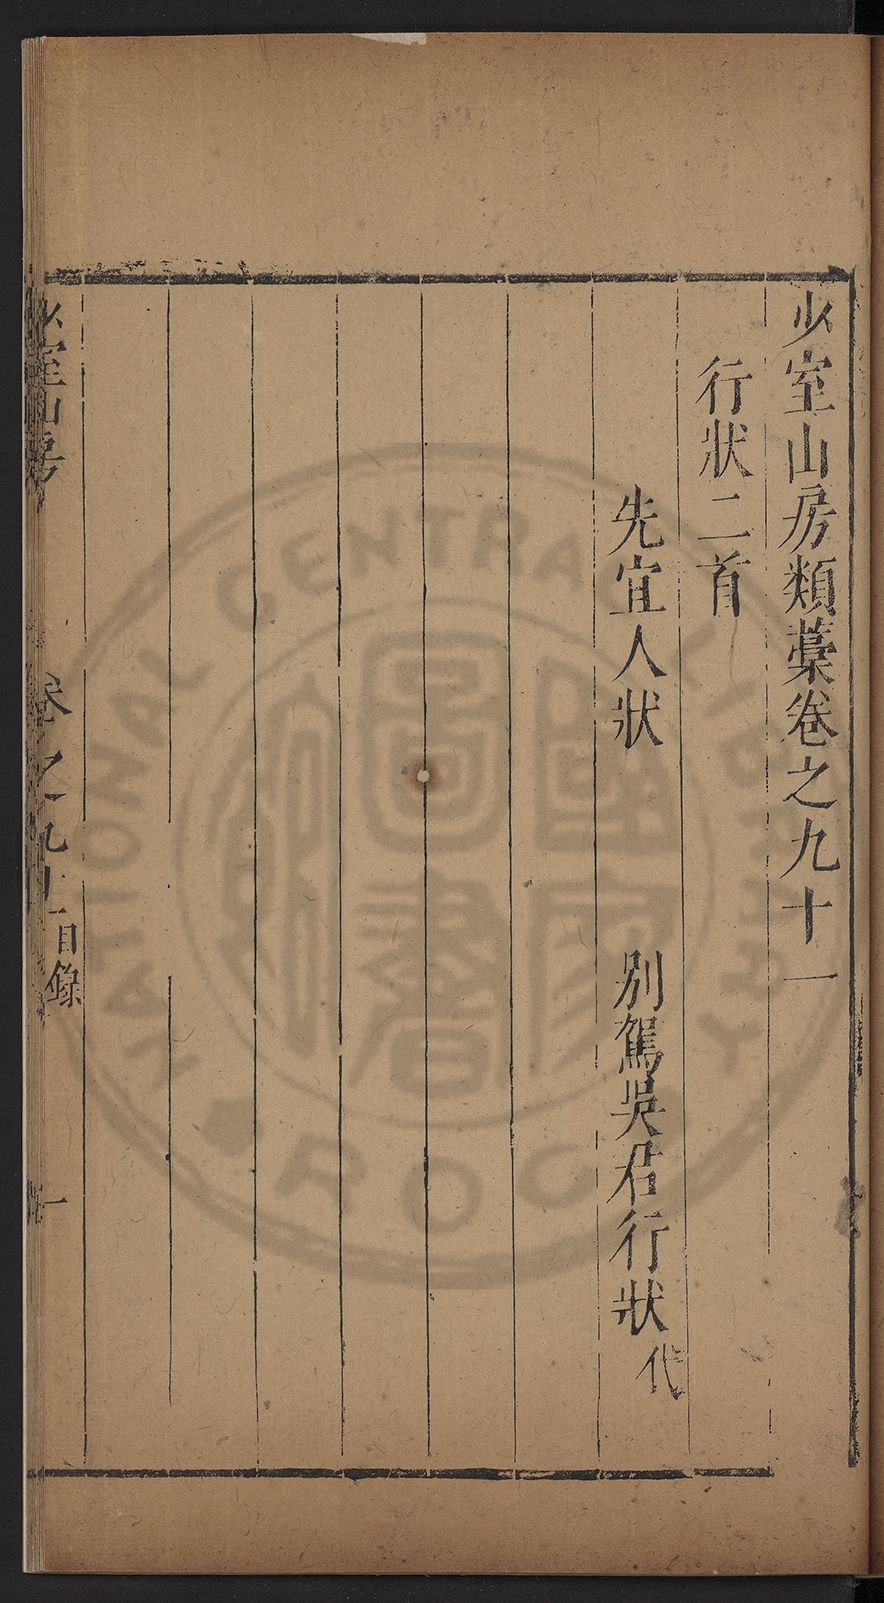 少室山房類藁卷之九十一
行狀二首
先宜人狀 別駕吳君行狀代
少室山房 卷之九十一目錄 一
NATIONAL CENTRAL LIBRARY R.O.C.
國家圖書館